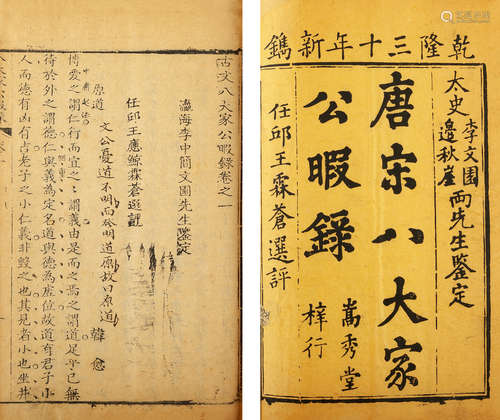 乾隆三十年新鐫
太史李文園邊秋崖兩先生鑒定
唐宋八大家
公暇錄
嵩秀堂
梓行
任邱王霖蒼選評
古文八大家公暇錄卷之一
瀛海李中簡文園先生鑒定
任邱王應鯨霖蒼選評
原道
韓愈
文公憂道不明而欲明道原故曰原道
博愛之謂仁行而宜之之謂義由是而之焉之謂道足乎己無
待於外之謂德仁與義為定名道與德為虛位故道有君子小
人而德有凶有吉老子之小仁義非毀之也其見者小也坐井